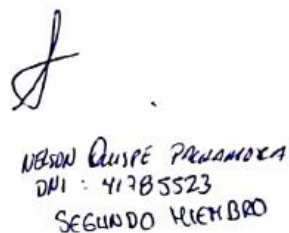 NELSON QUISPE PACHAMORA
DNI : 41785523
SEGUNDO MIEMBRO